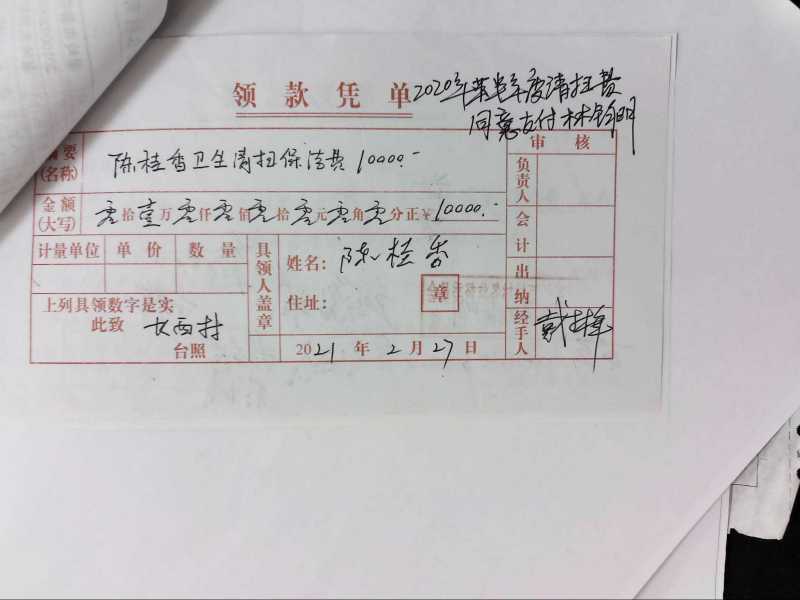 领款凭单
2020年 年度清扫费
同意支付 林
审核
摘要(名称) 陈桂香卫生清扫保洁费 10000.-
负责人
金额(大写) 零拾壹万零仟零佰零拾零元零角零分正¥10000.-
会计
计量单位 单价 数量
具领人盖章
姓名: 陈桂香
住址: 章
出纳
上列具领数字是实
此致 大西村
台照
2021年2月27日
经手人 戴